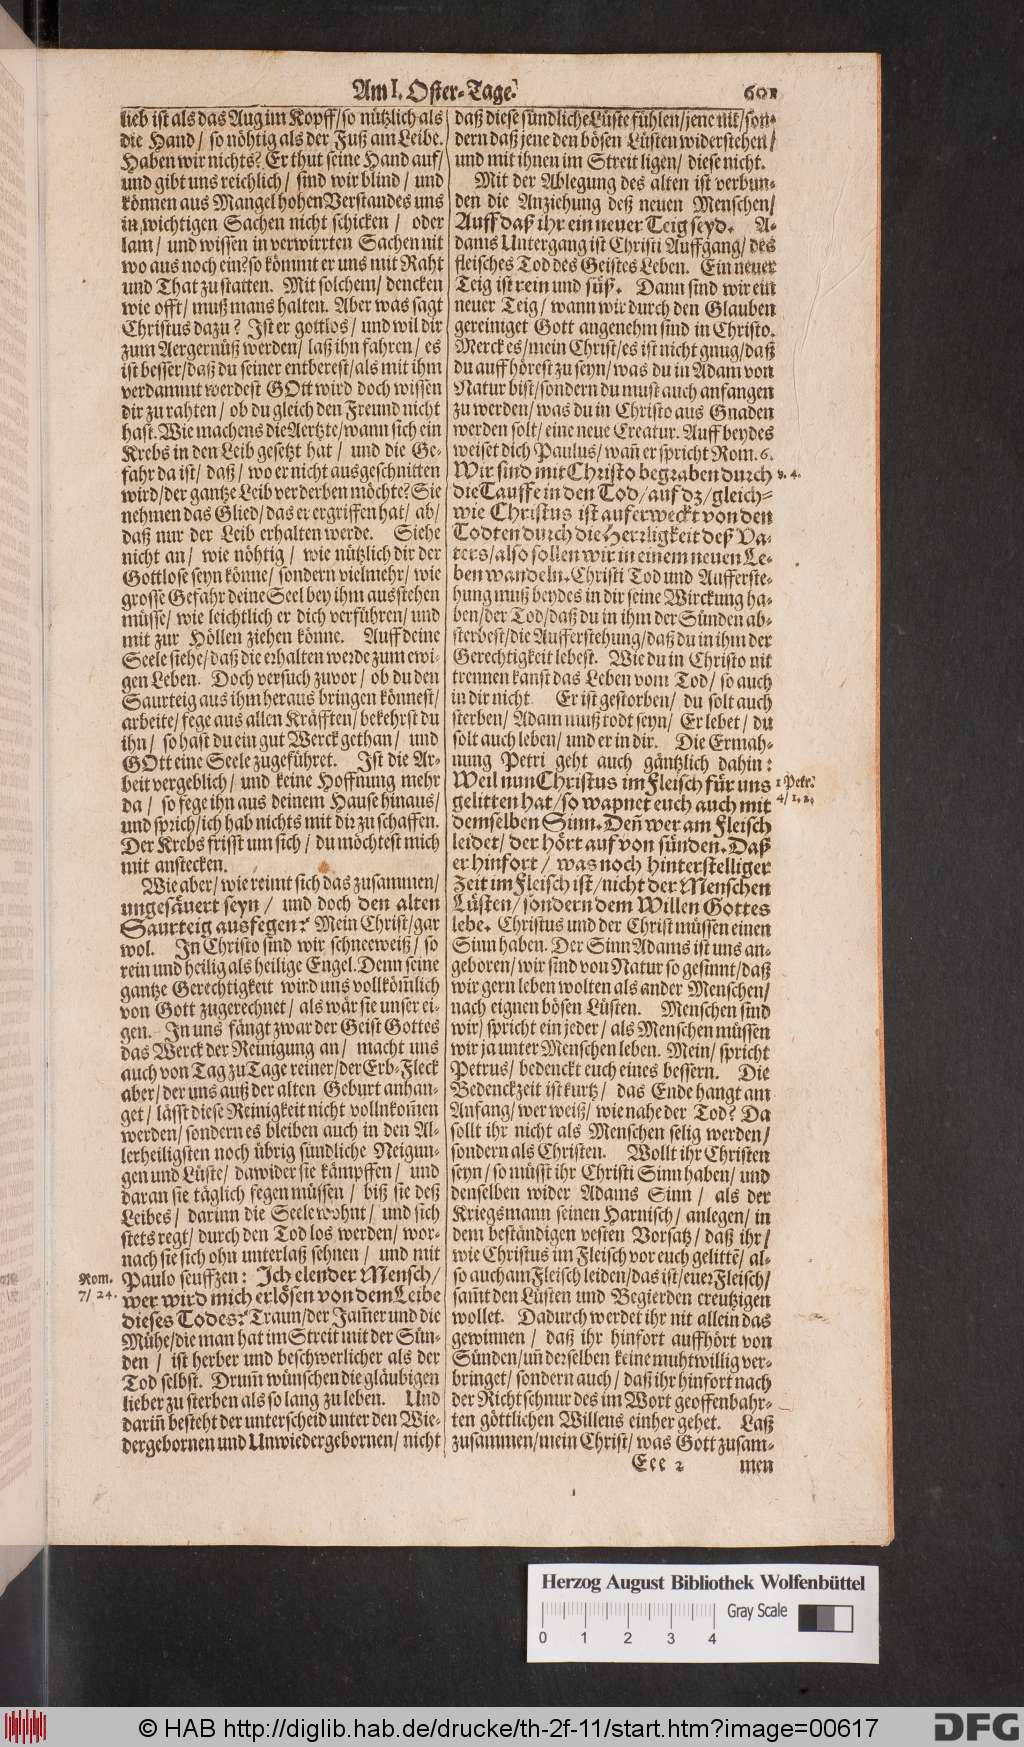 Am I. Oster-Tage.
601
lieb ist als das Aug im Kopff/ so nützlich als
die Hand/ so nöhtig als der Fuß am Leibe.
Haben wir nichts? Er thut seine Hand auf/
und gibt uns reichlich/ sind wir blind/ und
können aus Mangel hohen Verstandes uns
in wichtigen Sachen nicht schicken/ oder
lam/ und wissen in verwirrten Sachen nit
wo aus noch ein? so kömmt er uns mit Raht
und That zu statten. Mit solchem/ dencken
wie offt/ muß mans halten. Aber was sagt
Christus dazu? Ist er gottlos/ und wil dir
zum Aergernüß werden/ laß ihn fahren/ es
ist besser/ daß du seiner entberest/ als mit ihm
verdammt werdest GOtt wird doch wissen
dir zu rahten/ ob du gleich den Freund nicht
hast. Wie machens die Aertzte/ wann sich ein
Krebs in den Leib gesetzt hat/ und die Ge-
fahr da ist/ daß/ wo er nicht ausgeschnitten
wird/ der gantze Leib verderben möchte? Sie
nehmen das Glied/ das er ergriffen hat/ ab/
daß nur der Leib erhalten werde. Siehe
nicht an/ wie nöhtig/ wie nützlich dir der
Gottlose seyn könne/ sondern vielmehr/ wie
grosse Gefahr deine Seel bey ihm ausstehen
müsse/ wie leichtlich er dich verführen/ und
mit zur Höllen ziehen könne. Auff deine
Seele siehe/ daß die erhalten werde zum ewi-
gen Leben. Doch versuch zuvor/ ob du den
Saurteig aus ihm heraus bringen könnest/
arbeite/ fege aus allen Kräfften/ bekehrst du
ihn/ so hast du ein gut Werck gethan/ und
GOtt eine Seele zugeführet. Ist die Ar-
beit vergeblich/ und keine Hoffnung mehr
da/ so fege ihn aus deinem Hause hinaus/
und sprich/ ich hab nichts mit dir zu schaffen.
Der Krebs frisst um sich/ du möchtest mich
mit anstecken.
Wie aber/ wie reimt sich das zusammen/
ungesäuert seyn/ und doch den alten
Saurteig ausfegen? Mein Christ/ gar
wol. In Christo sind wir schneeweiß/ so
rein und heilig als heilige Engel. Denn seine
gantze Gerechtigkeit wird uns vollköm̃lich
von Gott zugerechnet/ als wär sie unser ei-
gen. In uns fängt zwar der Geist Gottes
das Werck der Reinigung an/ macht uns
auch von Tag zu Tage reiner/ der Erb-Fleck
aber/ der uns auß der alten Geburt anhan-
get/ lässt diese Reinigkeit nicht vollnkom̃en
werden/ sondern es bleiben auch in den Al-
lerheiligsten noch übrig sündliche Neigun-
gen und Lüste/ dawider sie kämpffen/ und
daran sie täglich fegen müssen/ biß sie deß
Leibes/ darinn die Seele wohnt/ und sich
stets regt/ durch den Tod los werden/ wor-
nach sie sich ohn unterlaß sehnen/ und mit
Rom. 7/ 24.
Paulo seuffzen: Ich elender Mensch/
wer wird mich erlösen von dem Leibe
dieses Todes? Traun/ der Jam̃er und die
Mühe/ die man hat im Streit mit der Sün-
den/ ist herber und beschwerlicher als der
Tod selbst. Drum̃ wünschen die gläubigen
lieber zu sterben als so lang zu leben. Und
darin̄ besteht der unterscheid unter den Wie-
dergebornen und Unwiedergebornen/ nicht
daß diese sündliche Lüste fühlen/ jene nit/ son-
dern daß jene den bösen Lüsten widerstehen/
und mit ihnen im Streit ligen/ diese nicht.
Mit der Ablegung des alten ist verbun-
den die Anziehung deß neuen Menschen/
Auff daß ihr ein neuer Teig seyd. A-
dams Untergang ist Christi Auffgang/ des
fleisches Tod des Geistes Leben. Ein neuer
Teig ist rein und süß. Dann sind wir ein
neuer Teig/ wann wir durch den Glauben
gereiniget Gott angenehm sind in Christo.
Merck es/ mein Christ/ es ist nicht gnug/ daß
du auffhörest zu seyn/ was du in Adam von
Natur bist/ sondern du must auch anfangen
zu werden/ was du in Christo aus Gnaden
werden solt/ eine neue Creatur. Auff beydes
weiset dich Paulus/ wañ er spricht Rom. 6.
Wir sind mit Christo begraben durch
v. 4.
die Tauffe in den Tod/ auf dz/ gleich-
wie Christus ist auferweckt von den
Todten durch die Herrligkeit deß Va-
ters/ also sollen wir in einem neuen Le-
ben wandeln. Christi Tod und Aufferste-
hung muß beydes in dir seine Wirckung ha-
ben/ der Tod/ daß du in ihm der Sünden ab-
sterbest/ die Aufferstehung/ daß du in ihm der
Gerechtigkeit lebest. Wie du in Christo nit
trennen kanst das Leben vom Tod/ so auch
in dir nicht Er ist gestorben/ du solt auch
sterben/ Adam muß todt seyn/ Er lebet/ du
solt auch leben/ und er in dir. Die Ermah-
nung Petri geht auch gäntzlich dahin:
Weil nun Christus im Fleisch für uns
1 Petr. 4/ 1. 2.
gelitten hat/ so wapnet euch auch mit
demselben Sinn. Deñ wer am Fleisch
leidet/ der hört auf von sünden. Daß
er hinfort/ was noch hinterstelliger
Zeit im Fleisch ist/ nicht der Menschen
Lüsten/ sondern dem Willen Gottes
lebe. Christus und der Christ müssen einen
Sinn haben. Der Sinn Adams ist uns an-
geboren/ wir sind von Natur so gesinnt/ daß
wir gern leben wolten als ander Menschen/
nach eignen bösen Lüsten. Menschen sind
wir/ spricht ein jeder/ als Menschen müssen
wir ja unter Menschen leben. Mein/ spricht
Petrus/ bedenckt euch eines bessern. Die
Bedenckzeit ist kurtz/ das Ende hangt am
Anfang/ wer weiß/ wie nahe der Tod? Da
sollt ihr nicht als Menschen selig werden/
sondern als Christen. Wollt ihr Christen
seyn/ so müsst ihr Christi Sinn haben/ und
denselben wider Adams Sinn/ als der
Kriegsmann seinen Harnisch/ anlegen/ in
dem beständigen vesten Vorsatz/ daß ihr/
wie Christus im Fleisch vor euch gelittē/ al-
so auch am Fleisch leiden/ das ist/ euer Fleisch/
sam̃t den Lüsten und Begierden creutzigen
wollet. Dadurch werdet ihr nit allein das
gewinnen/ daß ihr hinfort auffhört von
Sünden/ uñ derselben keine muhtwillig ver-
bringet/ sondern auch/ daß ihr hinfort nach
der Richtschnur des im Wort geoffenbahr-
ten göttlichen Willens einher gehet. Laß
zusammen/ mein Christ/ was Gott zusam-
Eee 2
men
Herzog August Bibliothek Wolfenbüttel
Gray Scale
0 1 2 3 4
© HAB http://diglib.hab.de/drucke/th-2f-11/start.htm?image=00617
DFG